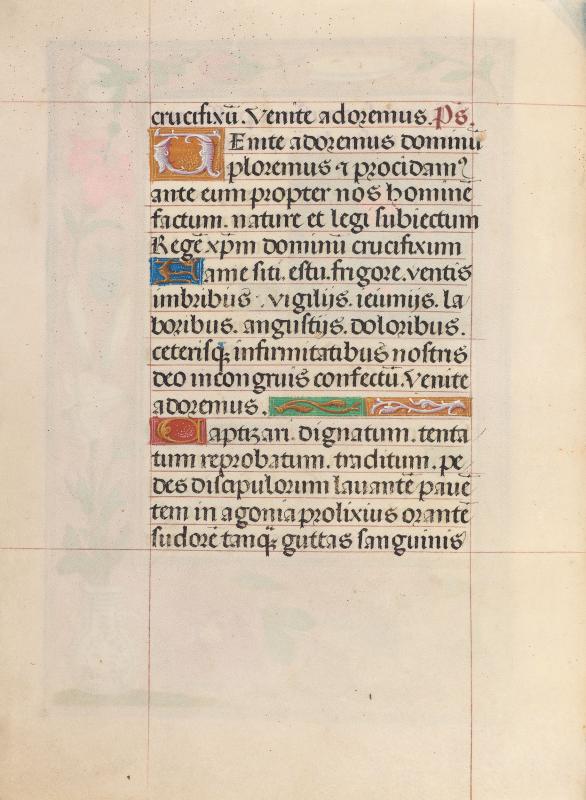 crucifixū. Venite adoremus. Ps.
VEnite adoremus dominū
ploremus ⁊ procidam᷒
ante eum propter nos hominē
factum. nature et legi subiectum
Regē xp̄m dominū crucifixum
Fame siti. estu. frigore. ventis
imbribus. vigilijs. ieiunijs. la
boribus. angustijs. doloribus.
ceterisqꝫ infirmitatibus nostris
deo incongruis confectū. Venite
adoremus.
Baptizari. dignatum. tenta
tum reprobatum. traditum. pe
des discipulorum lauantē paue
tem in agonia prolixius orantē
sudorē tanqꝫ guttas sanguinis